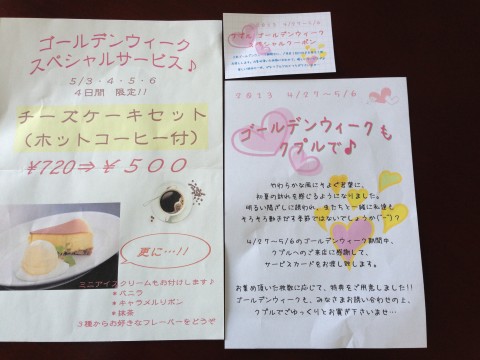 ゴールデンウィーク
スペシャルサービス♪
5/3・4・5・6
4日間 限定!!
チーズケーキセット
(ホットコーヒー付)
¥720⇒¥500
更に…!!
ミニアイスクリームもお付けします♪
*バニラ
*キャラメルリボン
*抹茶
3種からお好きなフレーバーをどうぞ
2013 4/27～5/6
クプル ゴールデンウィーク
スペシャルクーポン
2013 4/27～5/6
ゴールデンウィークも
クプルで♪
やわらかな風にそよぐ若葉に、
初夏の訪れを感じるようになりました。
明るい陽ざしに誘われ、虫たちと一緒に私達も
そろそろ動きだす季節ではないでしょうか(^-^)?
4/27～5/6のゴールデンウィーク期間中、
クプルへのご来店に感謝して、
サービスカードをお渡し致します。
お集め頂いた枚数に応じて、特典をご用意しました!!
ゴールデンウィークも、みなさまお誘い合わせの上、
クプルでごゆっくりとお寛ぎ下さいませ…